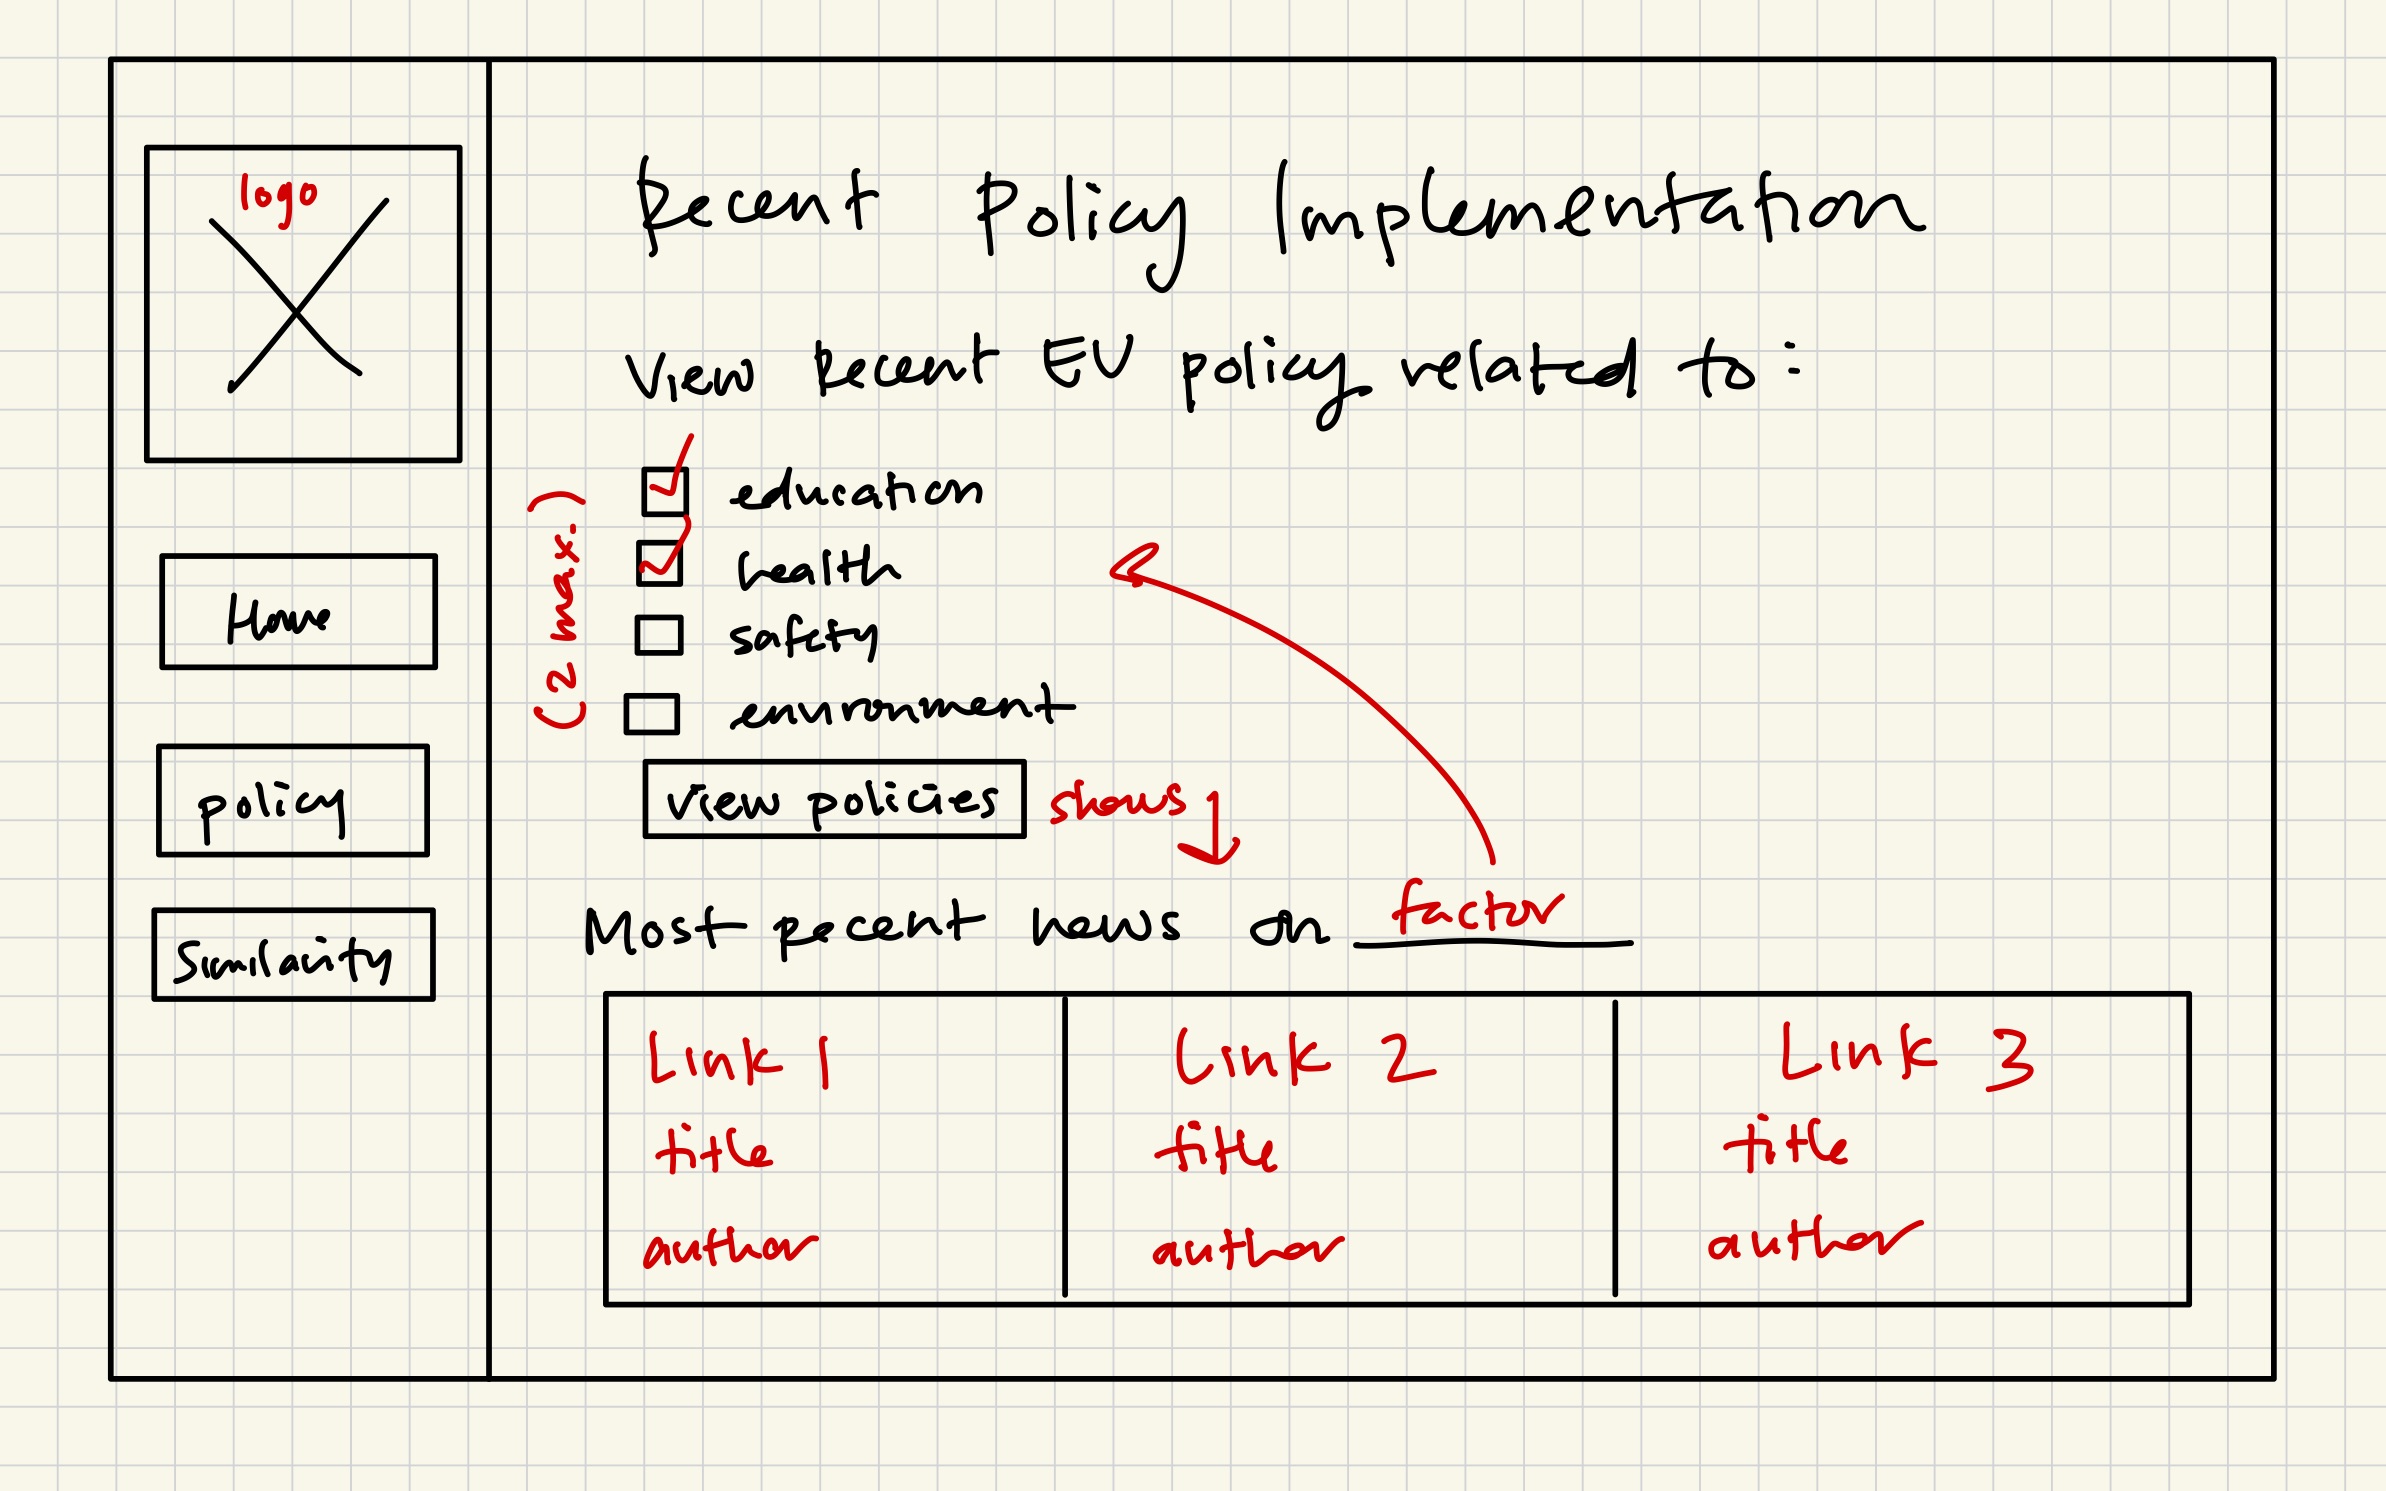 logo
Home
policy
Similarity
Recent Policy Implementation
View Recent EU policy related to:
(2 max.)
education
health
safety
environment
view policies
shows
Most recent news on factor
Link 1
title
author
Link 2
title
author
Link 3
title
author